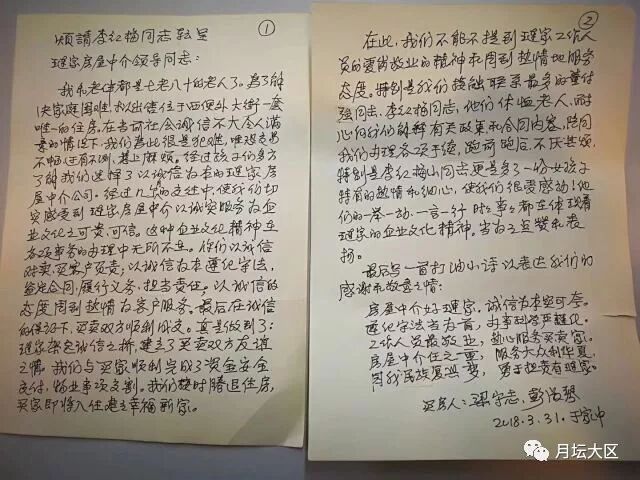 ①
烦请李红梅同志转呈
链家房屋中介领导同志：
我和老伴都是七老八十的老人了。为了解
决家庭困难，拟出售位于西便外大街一套
唯一的住房，在当前社会诚信不大令人满
意的情况下，我们为此很是犯难，唯恐交易
不畅或有不测，惹上麻烦。经过孩子们多方
了解我们选择了以诚信为本的链家房
屋中介公司。经过几个月的交往中，使我们切
实感受到链家房屋中介以诚实服务为企
业文化之可贵、可信。这种企业文化精神在
各项事务的办理中无所不在。你们以诚信
对卖、买客户负责；以诚信为本遵纪守法，
签定合同，履行义务，担当责任。以诚信的
态度周到热情为客户服务。最后在诚信
的保证下，买卖双方顺利成交。真是做到了：
链家架起诚信之桥，建立了买卖双方友谊
之情。我们与买家顺利完成了资金安全
交付，物业事项交割。我们按时腾退住房，
买家即将入住建立幸福新家。
②
在此，我们不能不提到链家工作人
员的爱岗敬业的精神和周到热情地服务
态度。特别是我们接触联系最多的董付
强同志、李红梅同志，他们体恤老人，耐
心向我们解释有关政策和合同内容，陪同
我们办理各项手续，跑前跑后，不厌其烦，
特别是李红梅同志更是多了一份女孩子
特有的热情和细心，使我们很受感动！他
们的一举一动、一言一行时时事事都在体现着
链家的企业文化精神，当为之点赞和表
扬。
最后写一首打油小诗以表达我们的
感谢和敬意之情：
房屋中介好链家，诚信为本实可夸。
遵纪守法当为首，办事科学严谨化。
工作人员最敬业，热心服务买卖家。
房屋中介任之重，服务大众利华夏。
圆我民族复兴梦，勇于担责有链家。
买房人：梁守志，彭浩琴
2018.3.31.于家中
月坛大区